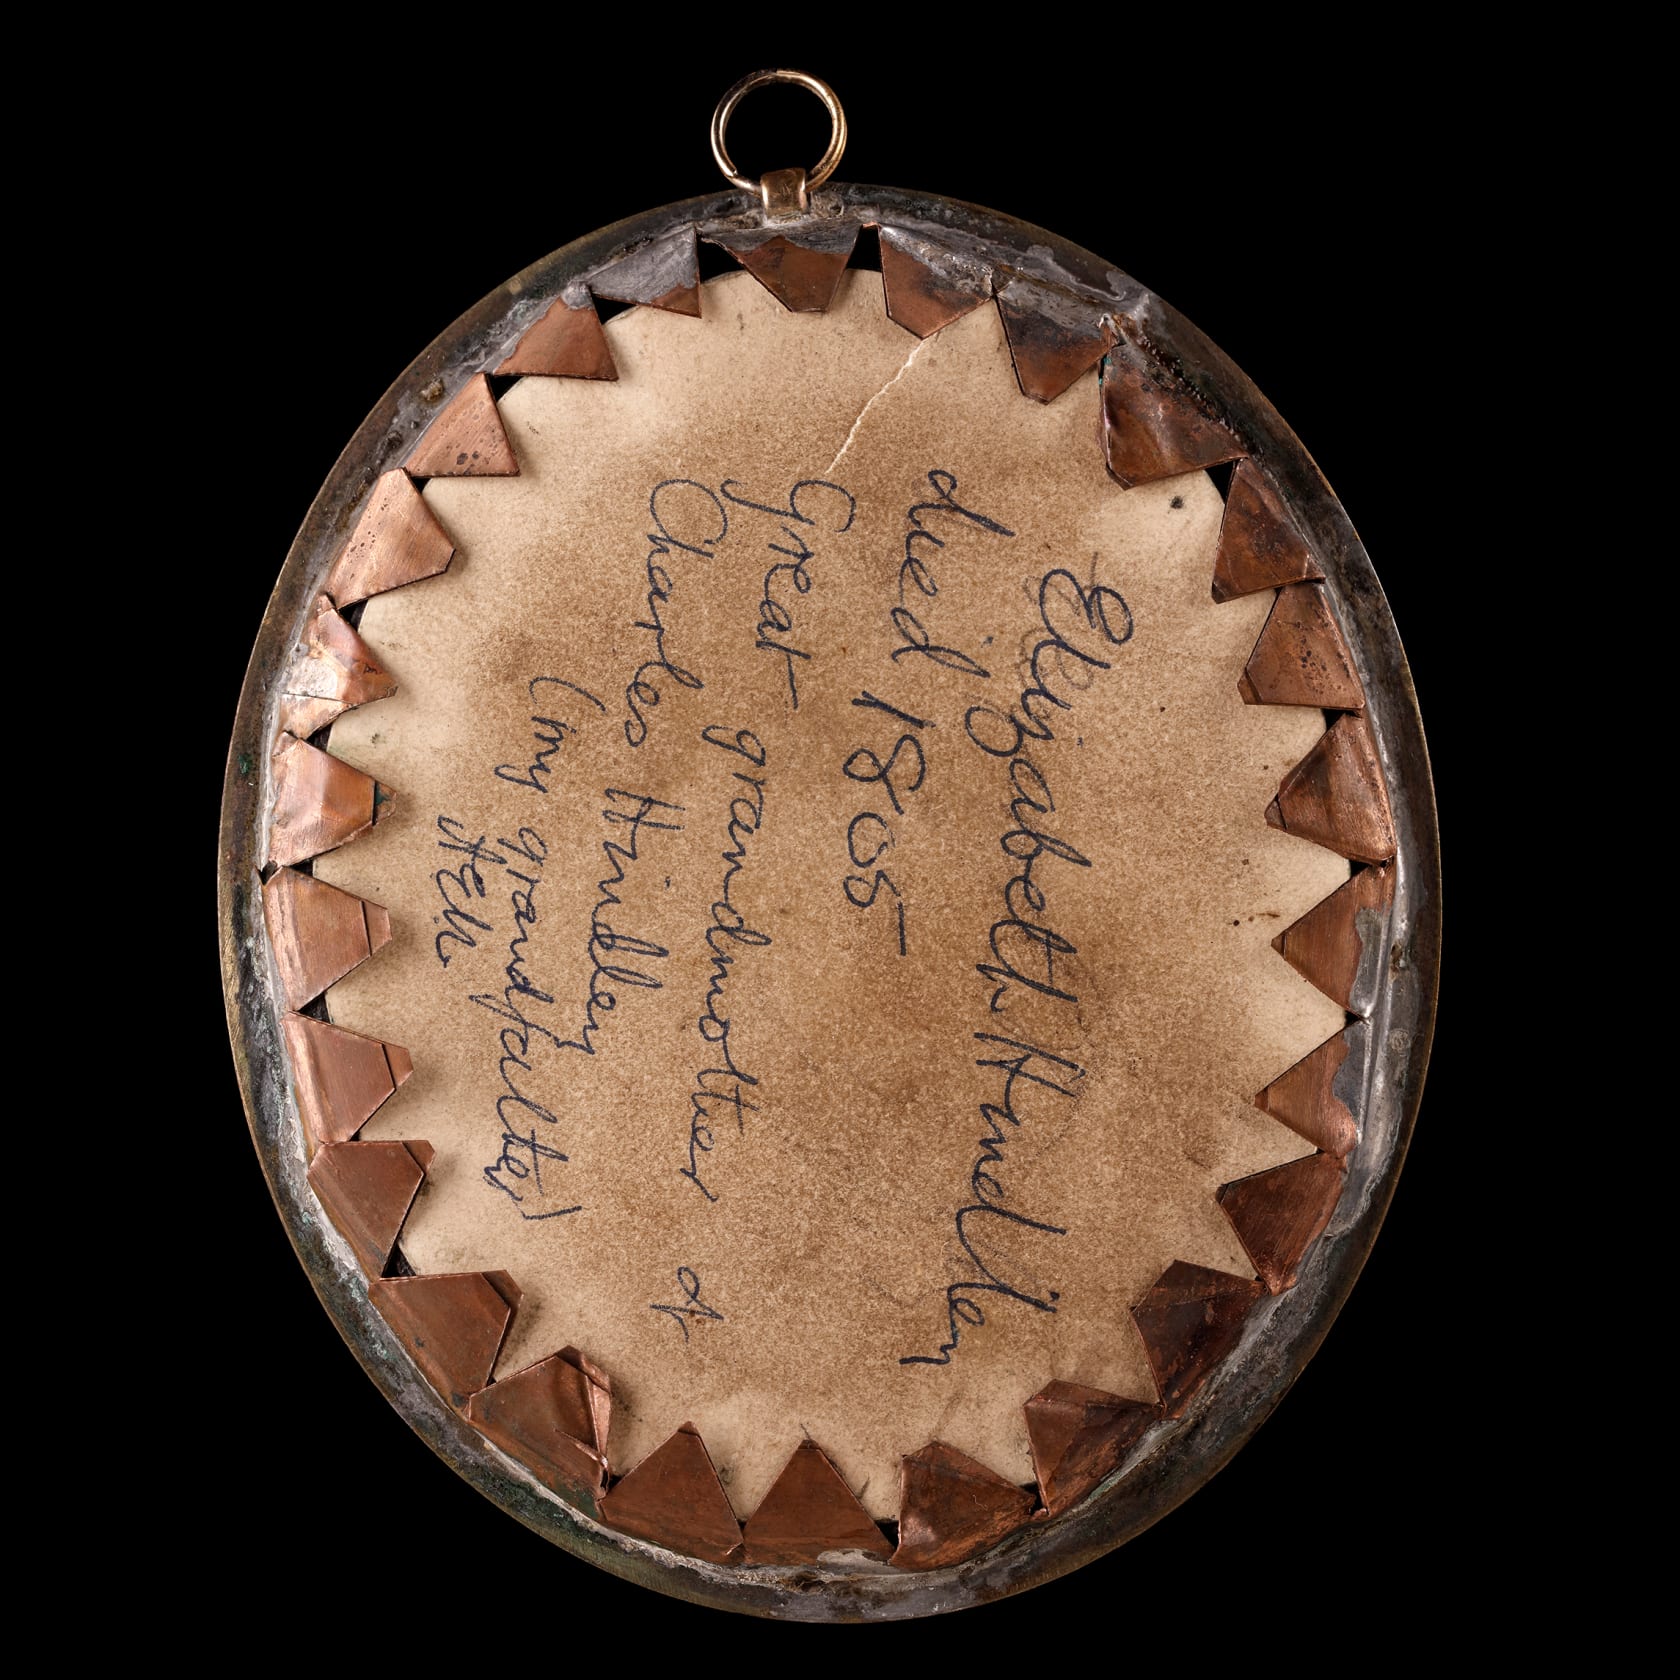 Elizabeth Hindley
died 1805
Great grandmother of
Charles Hindley
(my grandfather)